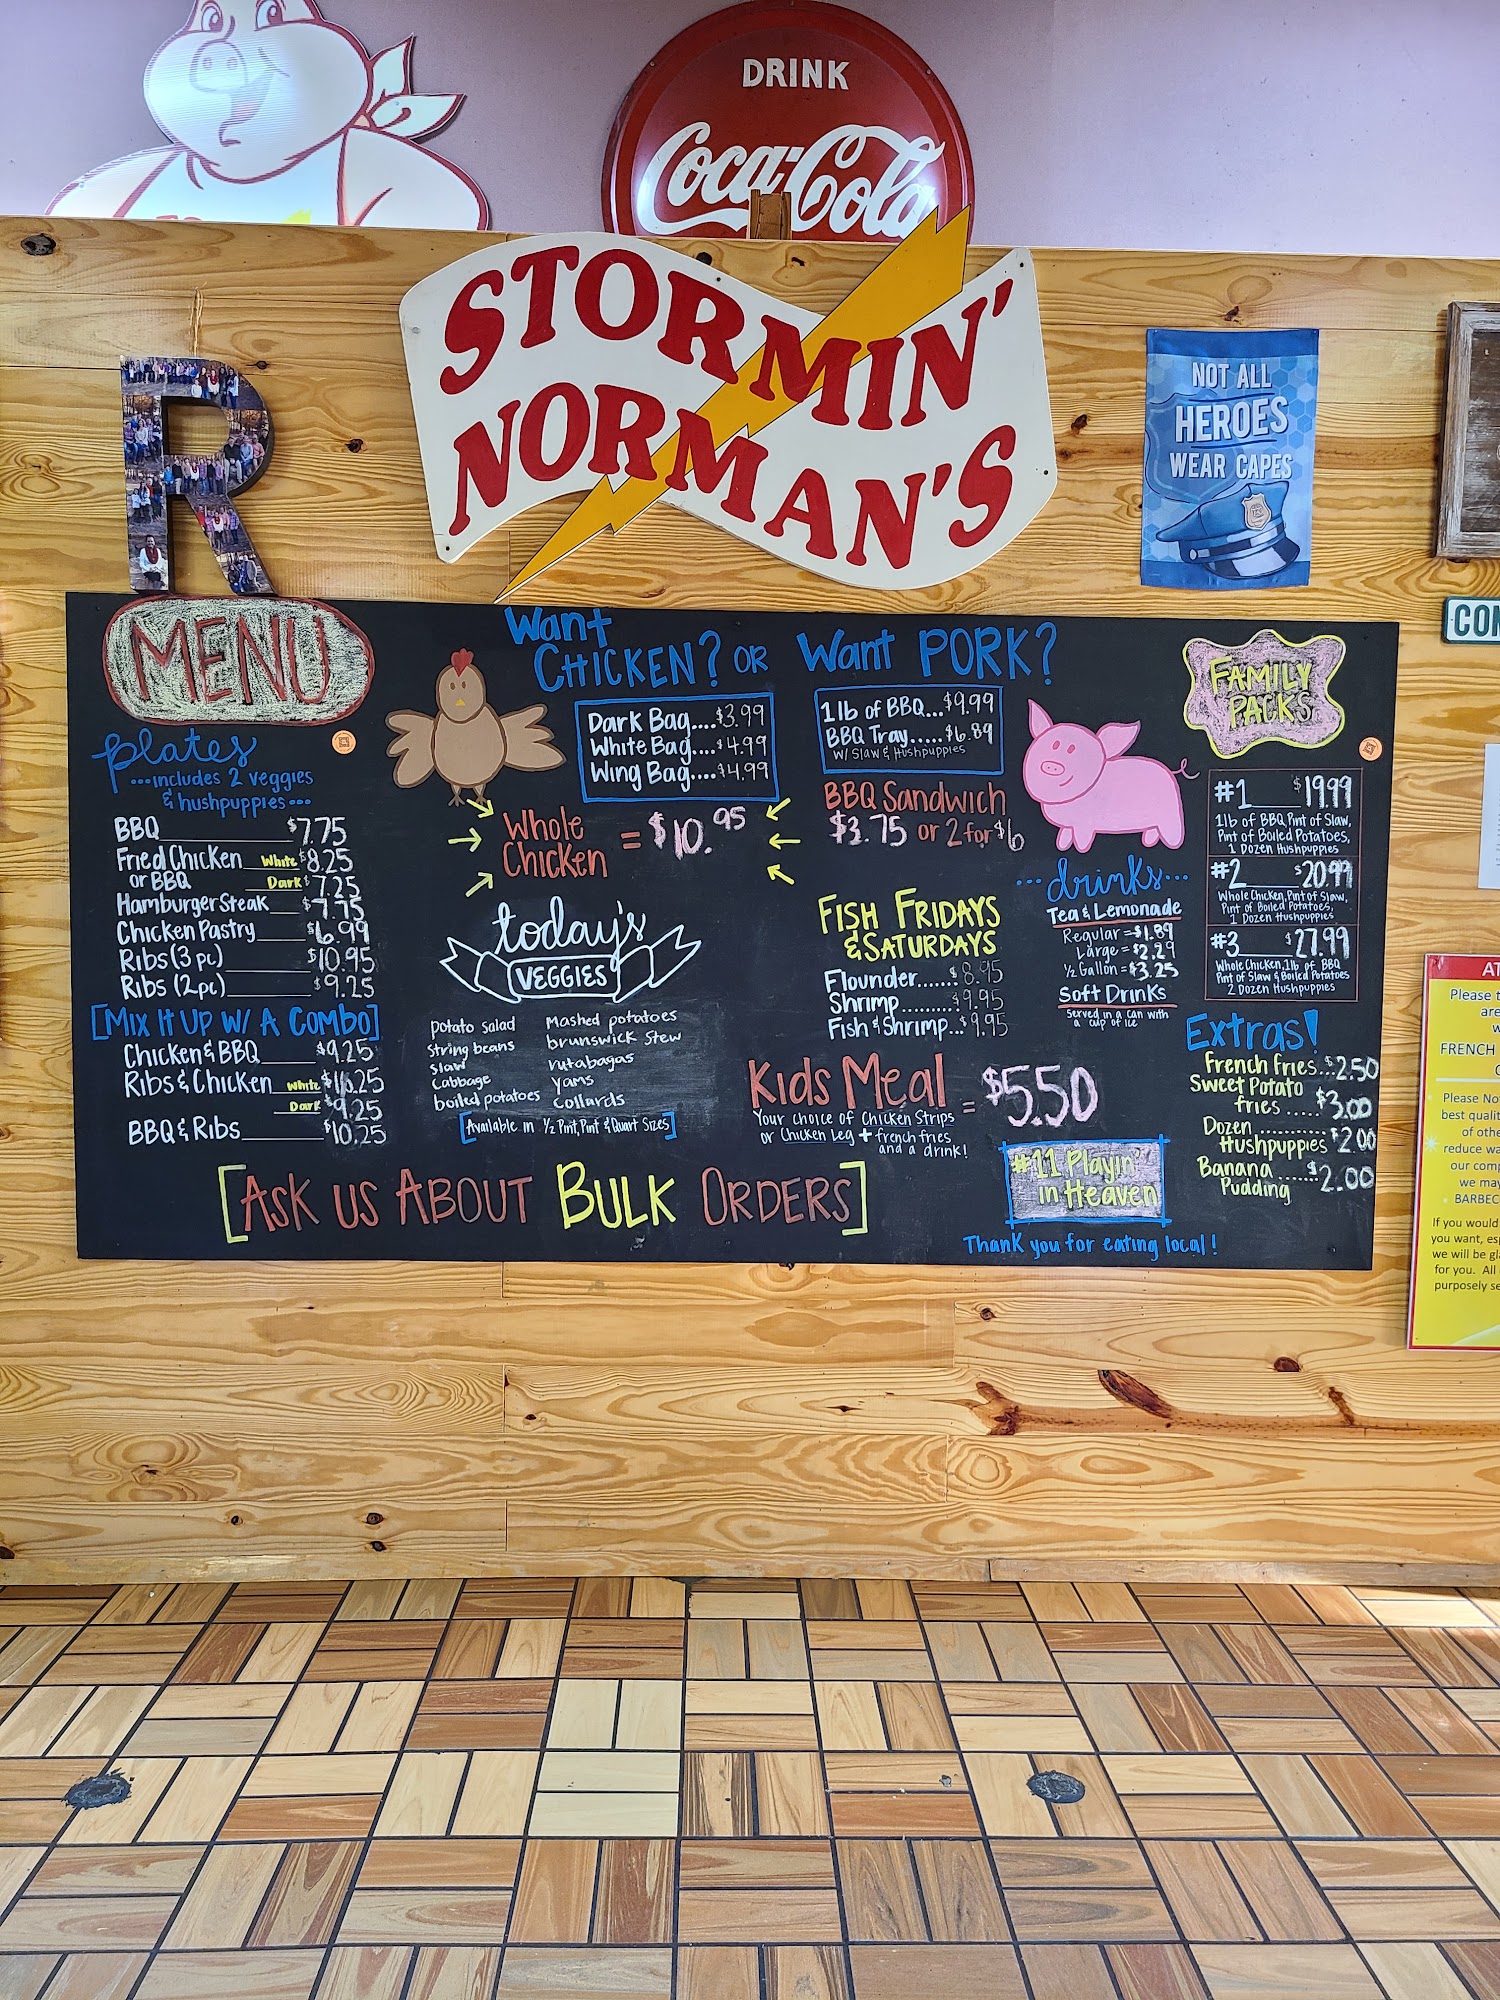 DRINK
Coca-Cola
STORMIN'
NORMAN'S
NOT ALL
HEROES
WEAR CAPES
R
MENU
plates
...includes 2 veggies
& hushpuppies...
BBQ $7.75
Fried Chicken White $8.25
or BBQ Dark $7.25
Hamburger Steak $7.75
Chicken Pastry $6.99
Ribs (3 pc) $10.95
Ribs (2pc) $9.25
[Mix It Up W/ A Combo]
Chicken & BBQ $9.25
Ribs & Chicken White
Dark $9.25
BBQ & Ribs $10.25
Want
CHICKEN? OR
Dark Bag....$3.99
White Bag....$4.99
Wing Bag....$4.99
Whole
Chicken = $10.95
today's
VEGGIES
Potato salad
String beans
Slaw
Cabbage
boiled potatoes
Mashed potatoes
brunswick stew
rutabagas
yams
collards
[Available in ½ Pint, Pint & Quart Sizes]
[Ask us About Bulk Orders]
Want PORK?
1 lb of BBQ...$9.99
BBQ Tray......$6.89
W/ Slaw & Hushpuppies
BBQ Sandwich
$3.75 or 2 for $6
Fish Fridays
& Saturdays
Flounder.......$8.95
Shrimp..........$9.95
Fish & Shrimp...$9.95
...drinks...
Tea & Lemonade
Regular = $1.89
Large = $2.29
½ Gallon = $3.25
Soft Drinks
Served in a can with
a cup of ice
Kids Meal = $5.50
Your choice of Chicken Strips
or Chicken Leg + french fries
and a drink!
#11 Playin'
in Heaven
Thank you for eating local!
FAMILY
PACKS
#1 $19.99
1 lb of BBQ, Pint of Slaw,
Pint of Boiled Potatoes,
1 Dozen Hushpuppies
#2 $20.99
Whole Chicken, Pint of Slaw,
Pint of Boiled Potatoes,
1 Dozen Hushpuppies
#3 $27.99
Whole Chicken, 1 lb of BBQ
Pint of Slaw & Boiled Potatoes
2 Dozen Hushpuppies
Extras!
French fries...$2.50
Sweet Potato
fries.....$3.00
Dozen
Hushpuppies $2.00
Banana.....$2.00
Pudding
COM
AT
Please t
are
w
FRENCH
Please No
best quali
of othe
reduce wa
our comp
we may
BARBEC
If you would
you want, esp
we will be gl
for you. All
purposely se